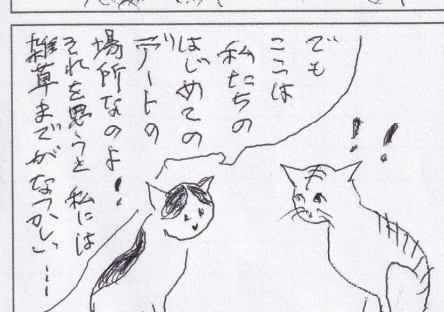 でも
ここは
私たちの
はじめての
デートの
場所なのよ!
それを思うと私には
雑草までがなつかしい…
!!